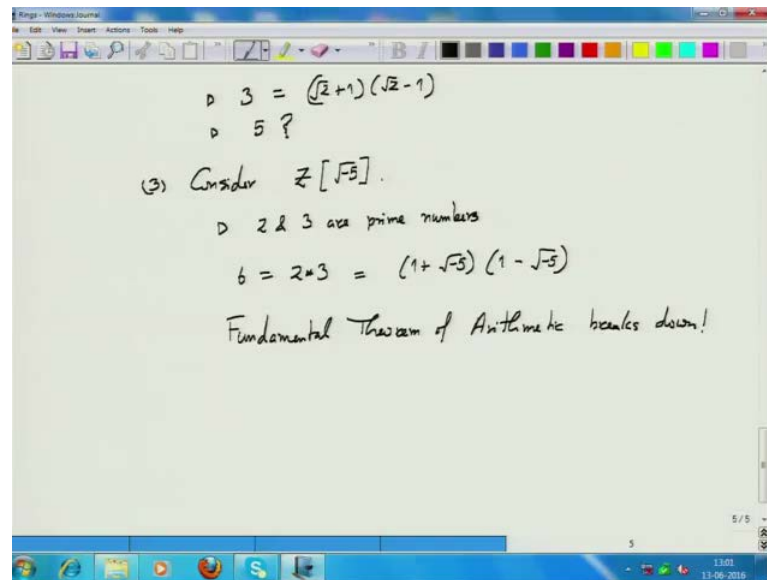 Rings - Windows Journal
File Edit View Insert Actions Tools Help
▷ 3 = (√2+1) (√2-1)
▷ 5 ?
(3) Consider Z [√-5] .
▷ 2 & 3 are prime numbers
6 = 2*3 = (1+ √-5) (1 - √-5)
Fundamental Theorem of Arithmetic breaks down!
5/5
5
13:01
13-06-2016